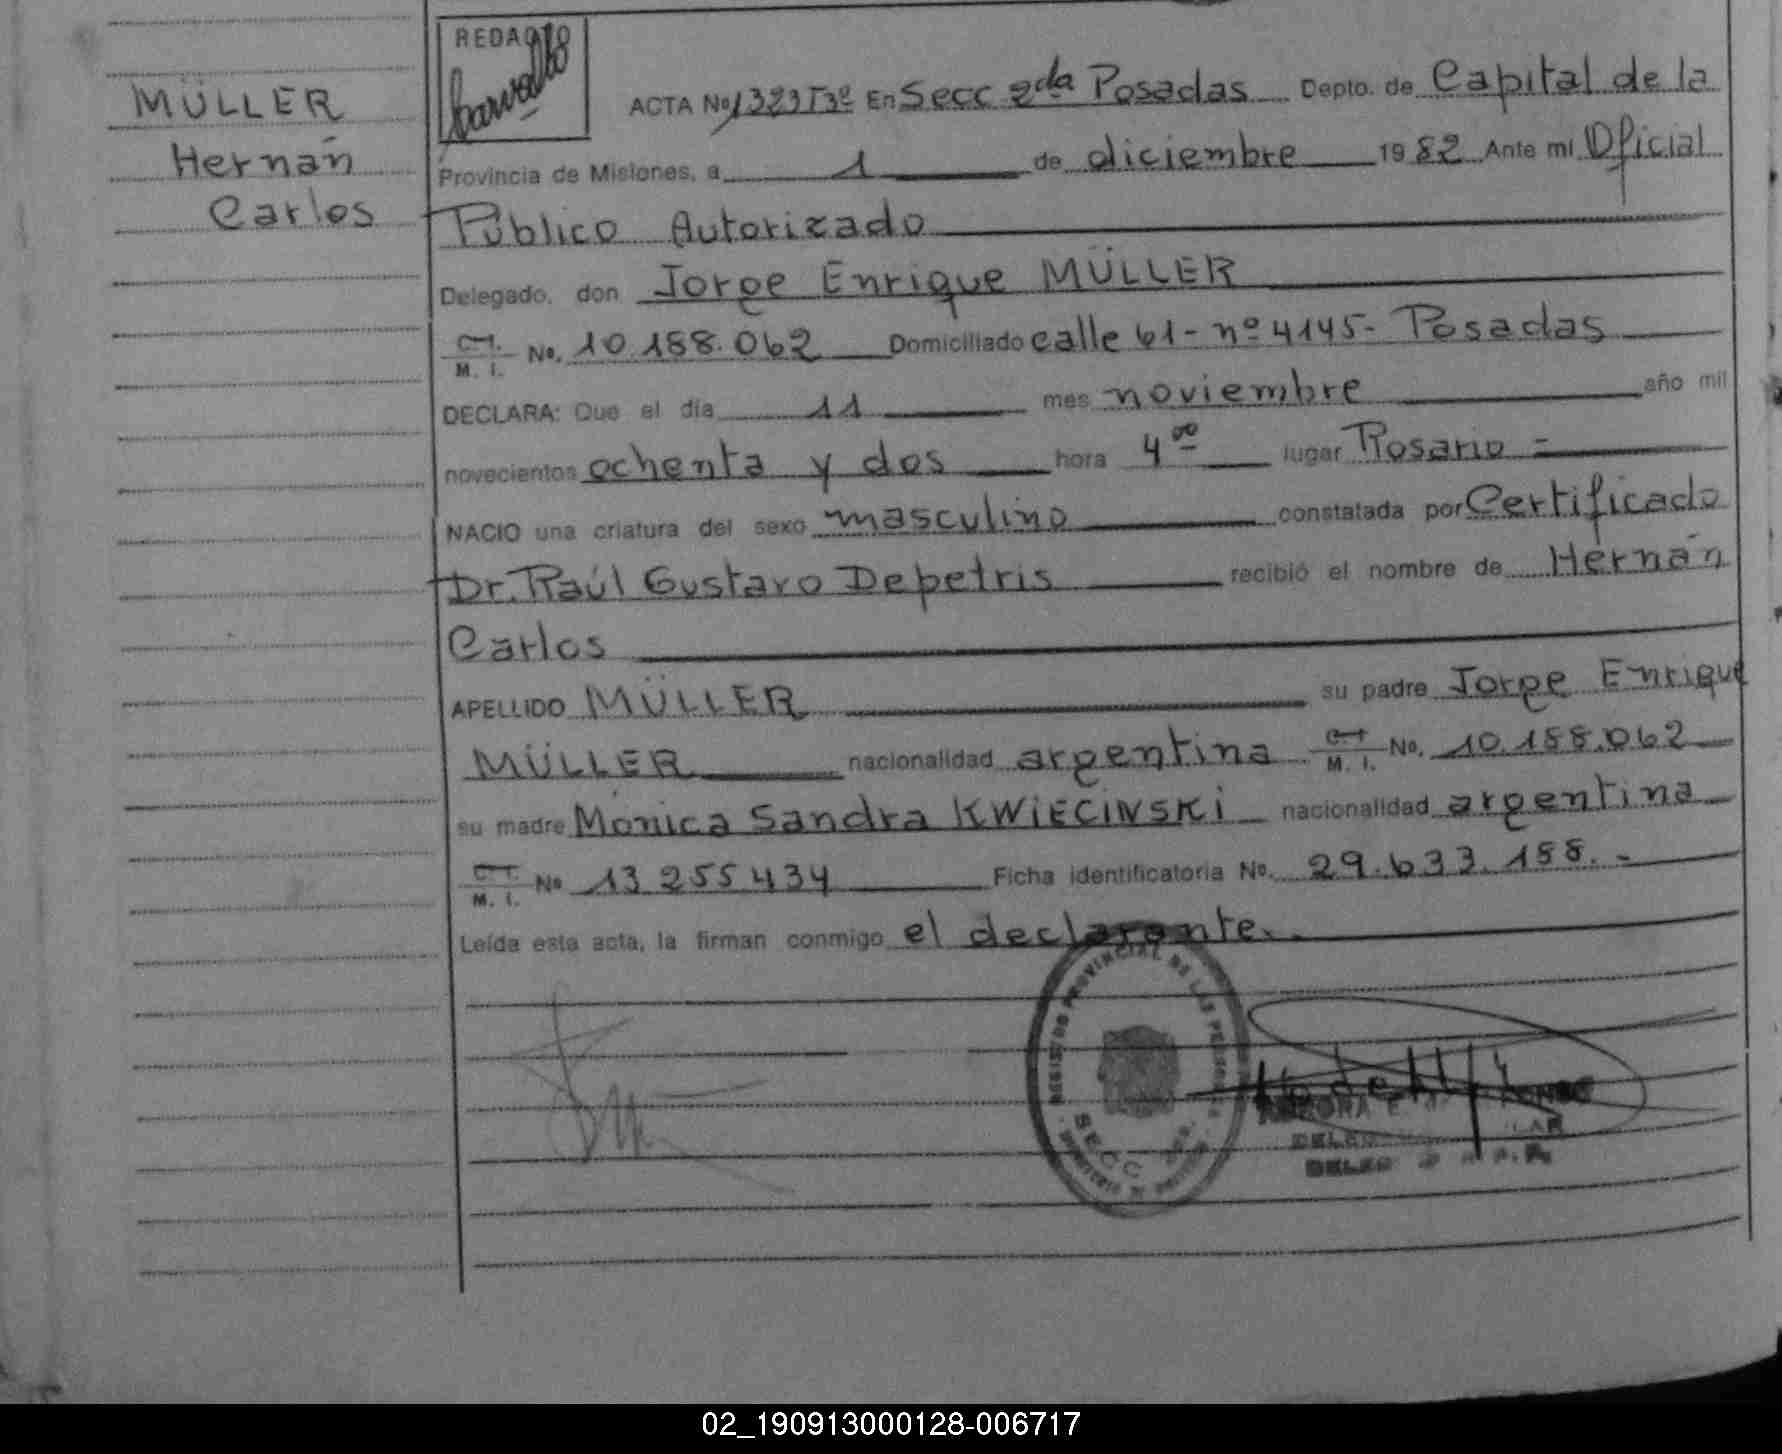 MÜLLER
Hernán
Carlos
REDACTO
ACTA No 1323 T3º En Secc 2da Posadas Depto. de Capital de la
Provincia de Misiones, a 1 de diciembre 1982 Ante mi Oficial
Público Autorizado
Delegado, don Jorge Enrique MÜLLER
C.I.
M. I. No. 10.188.062 Domiciliado calle 61 - nº 4145 - Posadas
DECLARA: Que el día 11 mes noviembre año mil
novecientos ochenta y dos hora 4 00 lugar Rosario =
NACIO una criatura del sexo masculino constatada por Certificado
Dr. Raúl Gustavo Depetris recibió el nombre de Hernán
Carlos
APELLIDO MÜLLER su padre Jorge Enrique
MÜLLER nacionalidad argentina C.I. M. I. No. 10.188.062
su madre Mónica Sandra KWIECINSKI nacionalidad argentina
C.I. M. I. No 13.255.434 Ficha identificatoria No. 29.633.188.-
Leída esta acta, la firman conmigo el declarante.
REGISTRO PROVINCIAL DE LAS PERSONAS
SECC.
02_190913000128-006717